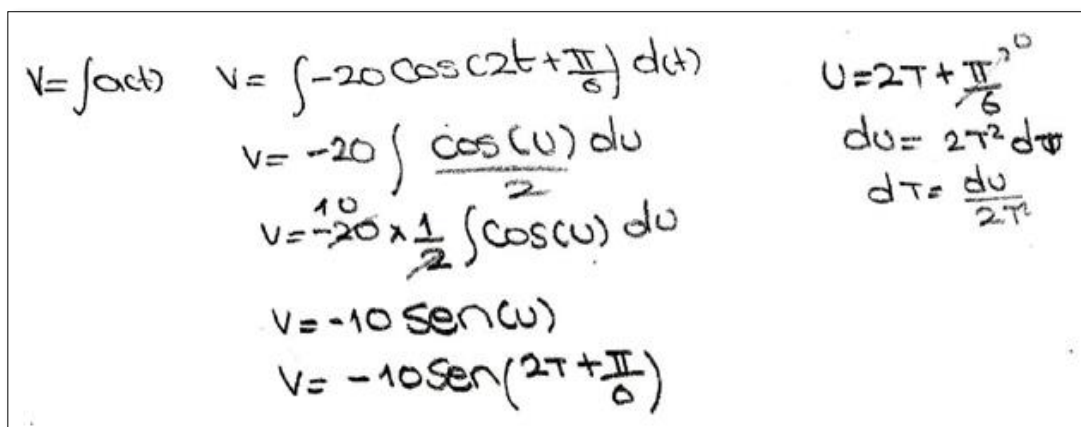 V = ∫a(t)   V = ∫-20 cos(2t + π/6) d(t)
V = -20 ∫ cos(u) du / 2
V = -20 10 × 1/2 ∫cos(u) du
V = -10 sen(u)
V = -10 sen(2T + π/6)
U = 2T + π/6 → 0
du = 2T² dT
dT = du / 2T²